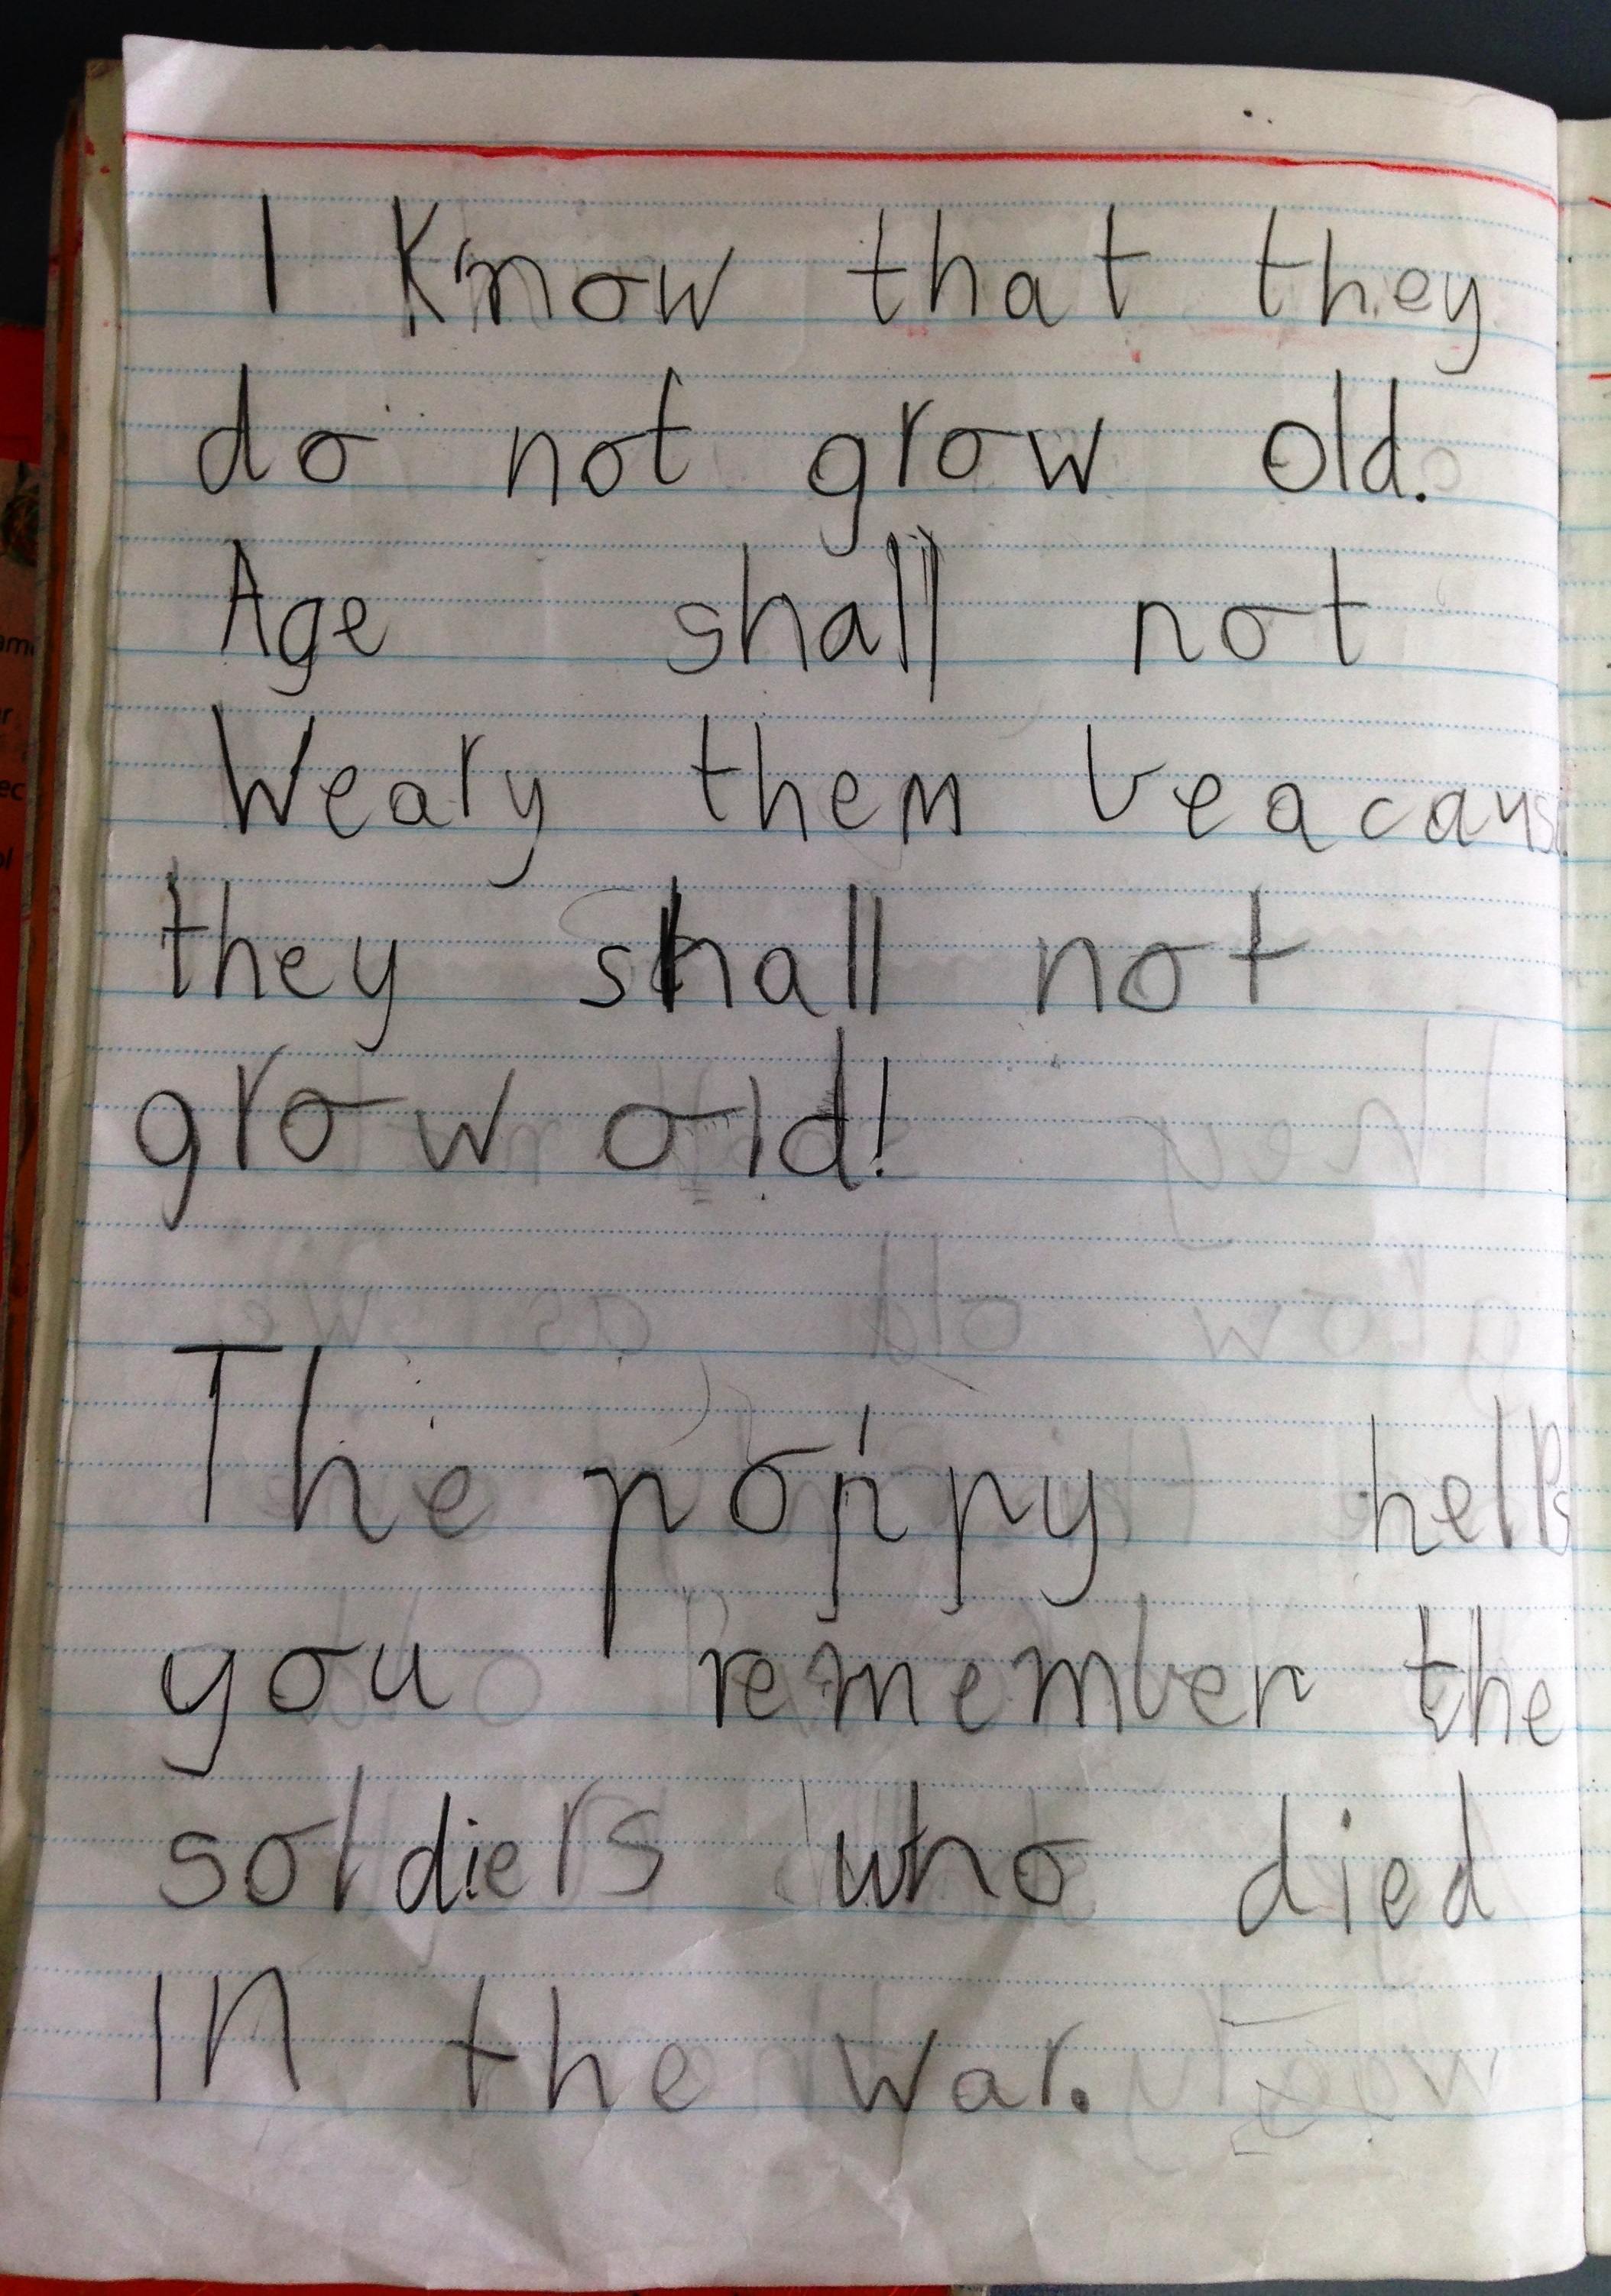 I Know that they
do not grow old.
Age shall not
Weary them beacause
they shall not
grow old!
The poppy helps
you remember the
soldiers who died
In the war.